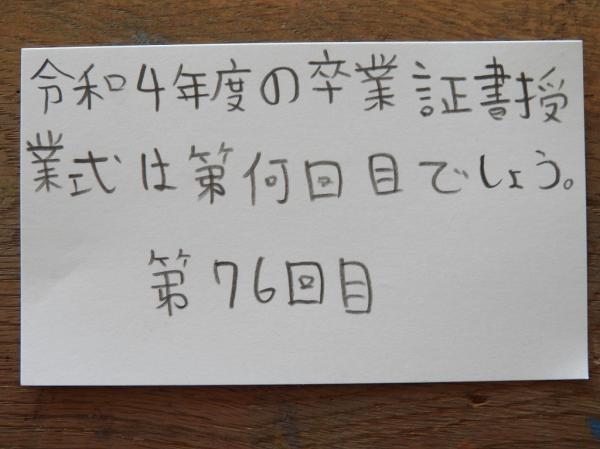 令和4年度の卒業証書授
業式は第何回目でしょう。
第76回目